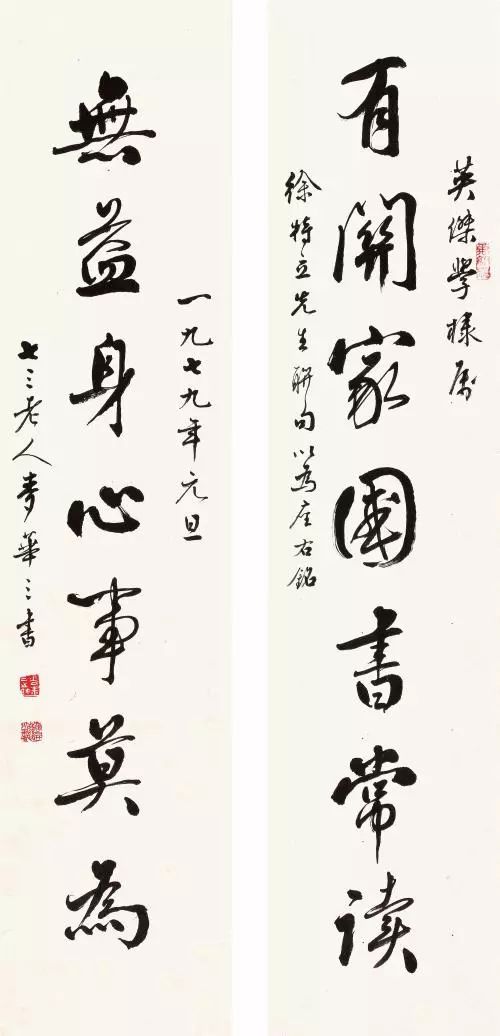 英傑學棣属
有關家國書常读
徐特立先生聯句以为座右銘
一九七九年元旦
無益身心事莫為
七三老人麥華三書